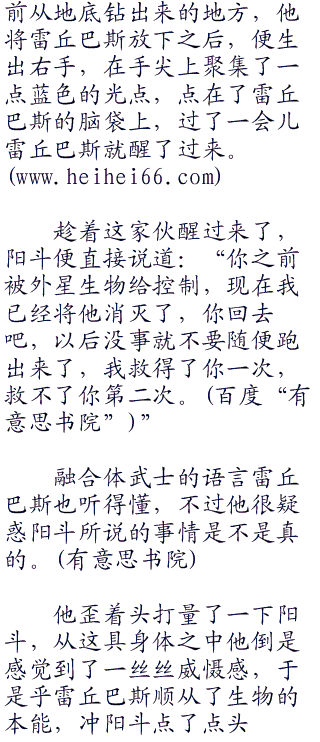 前从地底钻出来的地方，他
将雷丘巴斯放下之后，便生
出右手，在手尖上聚集了一
点蓝色的光点，点在了雷丘
巴斯的脑袋上，过了一会儿
雷丘巴斯就醒了过来。
(www.heihei66.com)
趁着这家伙醒过来了，
阳斗便直接说道：“你之前
被外星生物给控制，现在我
已经将他消灭了，你回去
吧，以后没事就不要随便跑
出来了，我救得了你一次，
救不了你第二次。(百度“有
意思书院”)”
融合体武士的语言雷丘
巴斯也听得懂，不过他很疑
惑阳斗所说的事情是不是真
的。(有意思书院)
他歪着头打量了一下阳
斗，从这具身体之中他倒是
感觉到了一丝丝威慑感，于
是乎雷丘巴斯顺从了生物的
本能，冲阳斗点了点头